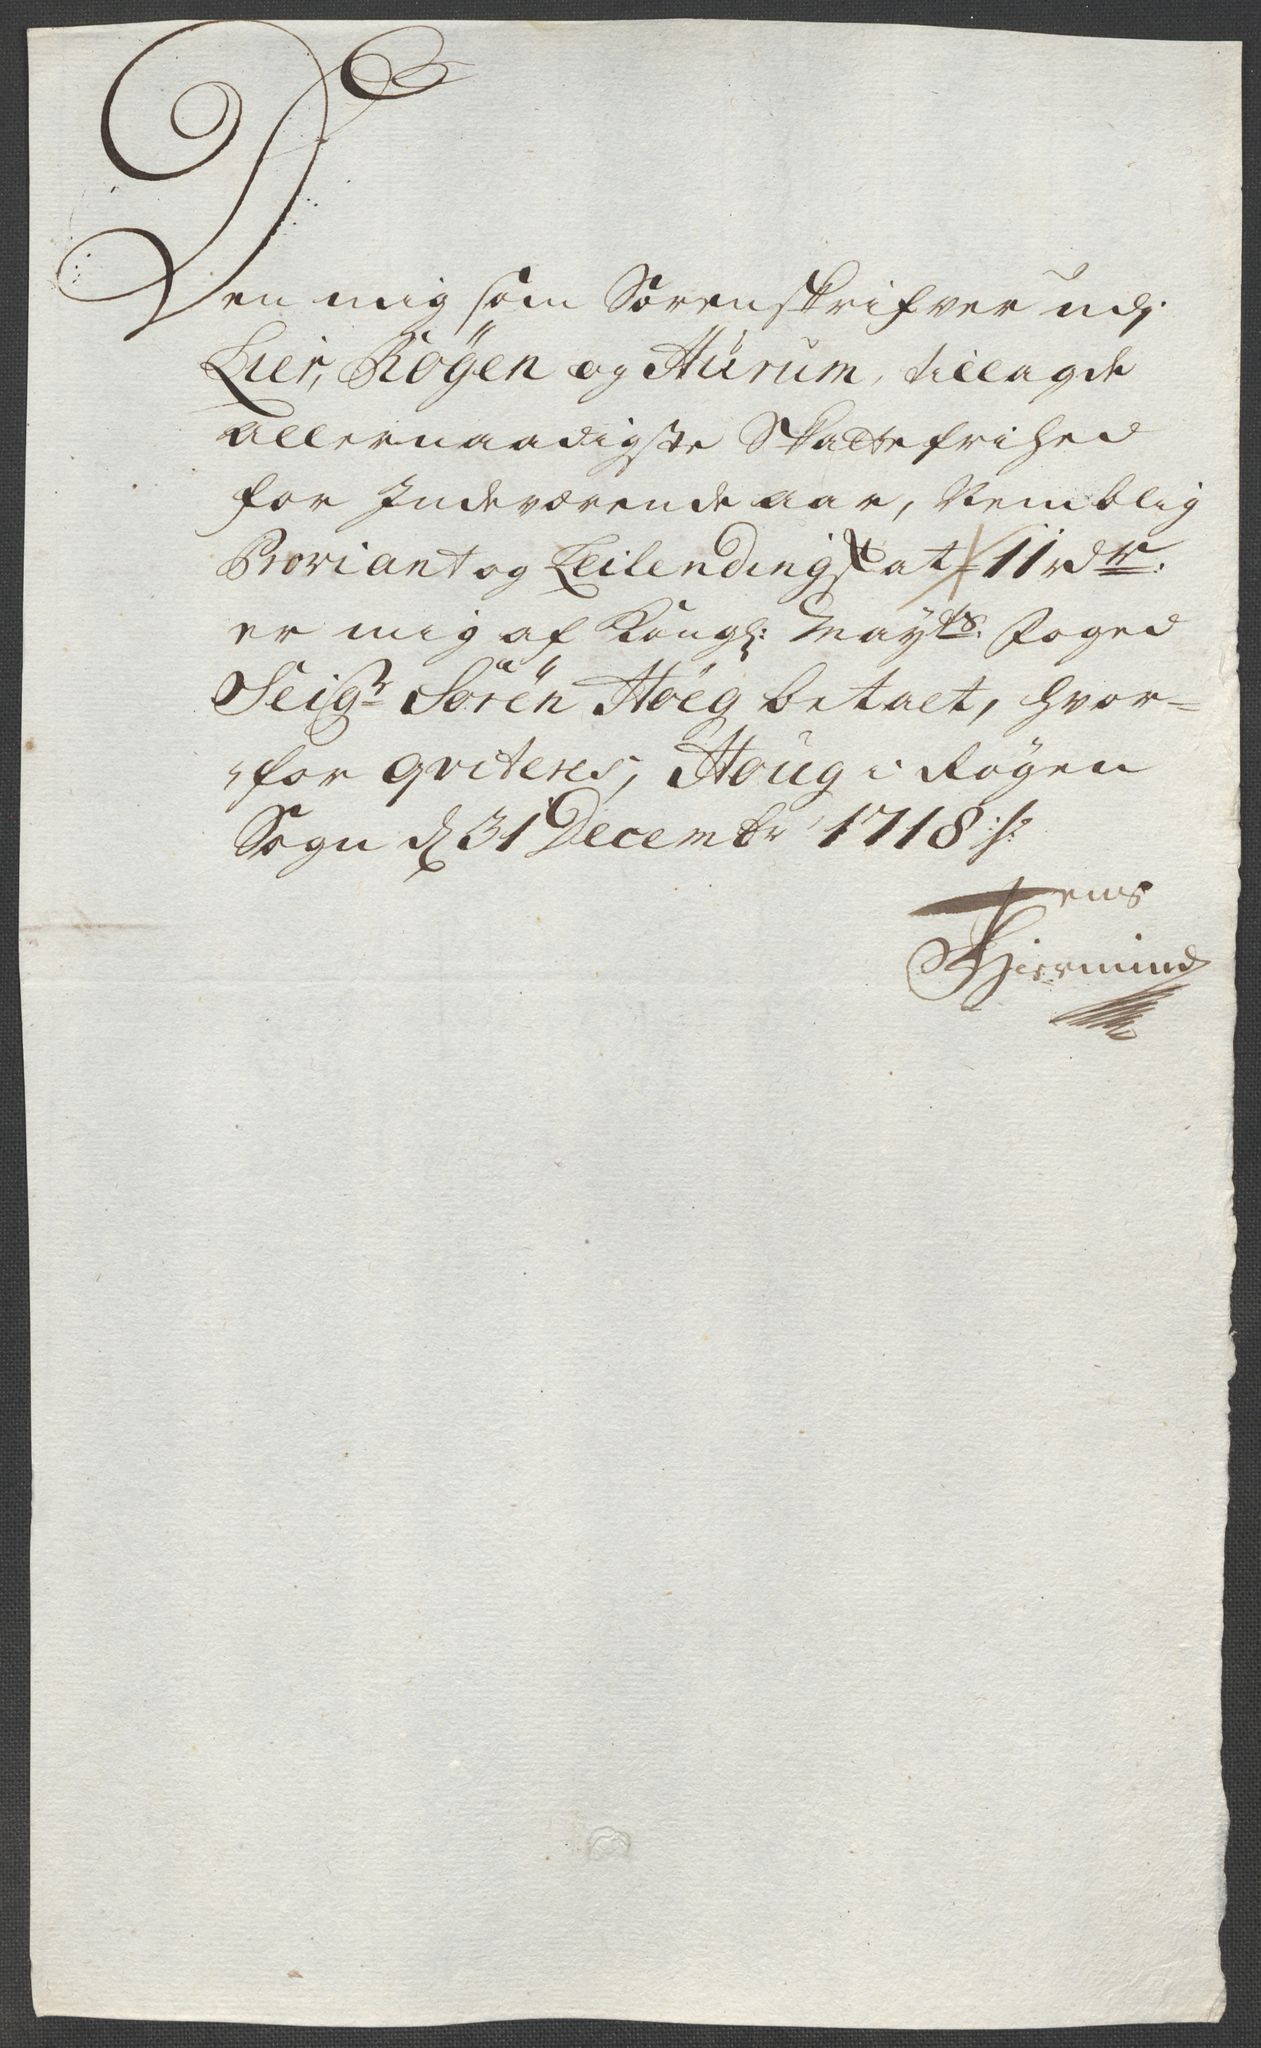 Den mig som Sorenskrifver udj
Lier, Röÿen og Hürum, tillagde
allernaadigste Skattefrihed
for Indeværende aar, Nemblig
Proviant og Leilendingskat 11 rdr.
er mig af Kongl: Mayts. Foged
Seigr Sören Höeg betalt, hvor=
for qviteres, Houg i Röyen
Sogn d 31 Decembr 1718 :/:
Jens
Hiermind